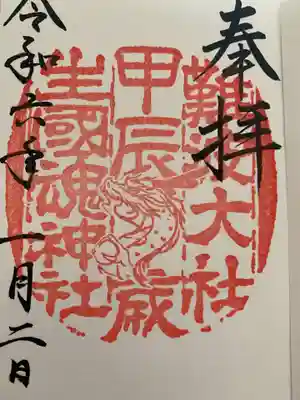 奉拝
難波大社
甲辰歳
生國魂神社
令和六年一月二日